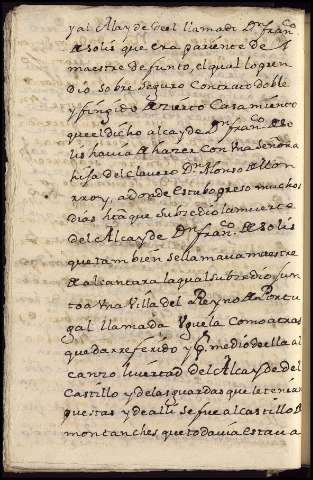 y al Alayde del llamadi Dn franco
de solis que era pariente de A
maestre defunto, el qual lo pren
dio sobre seguro Contrato doble
y fingido de zierto Casamiento
que el dicho alcayde Dn franco de so
lis havia de hazer con Vna Señora
hija del clavero Dn Alonso de Mon
rroy, adonde estubo preso muchos
dias hta que Subzedio la muerte
del Alcayde Dn franco de Solis
que tambien se llamava maestre
de alcantara la qual subzedio Jun
to a Vna Villa del Reyno de Portu
gal llamada Vguela Como atras
queda rreferido y Pr medio de ella al
canzo livertad del Alcayde del
Castillo y de las guardas que le tenian
puestas y de alli se fue al castillo de
montanches que todavia Estava a